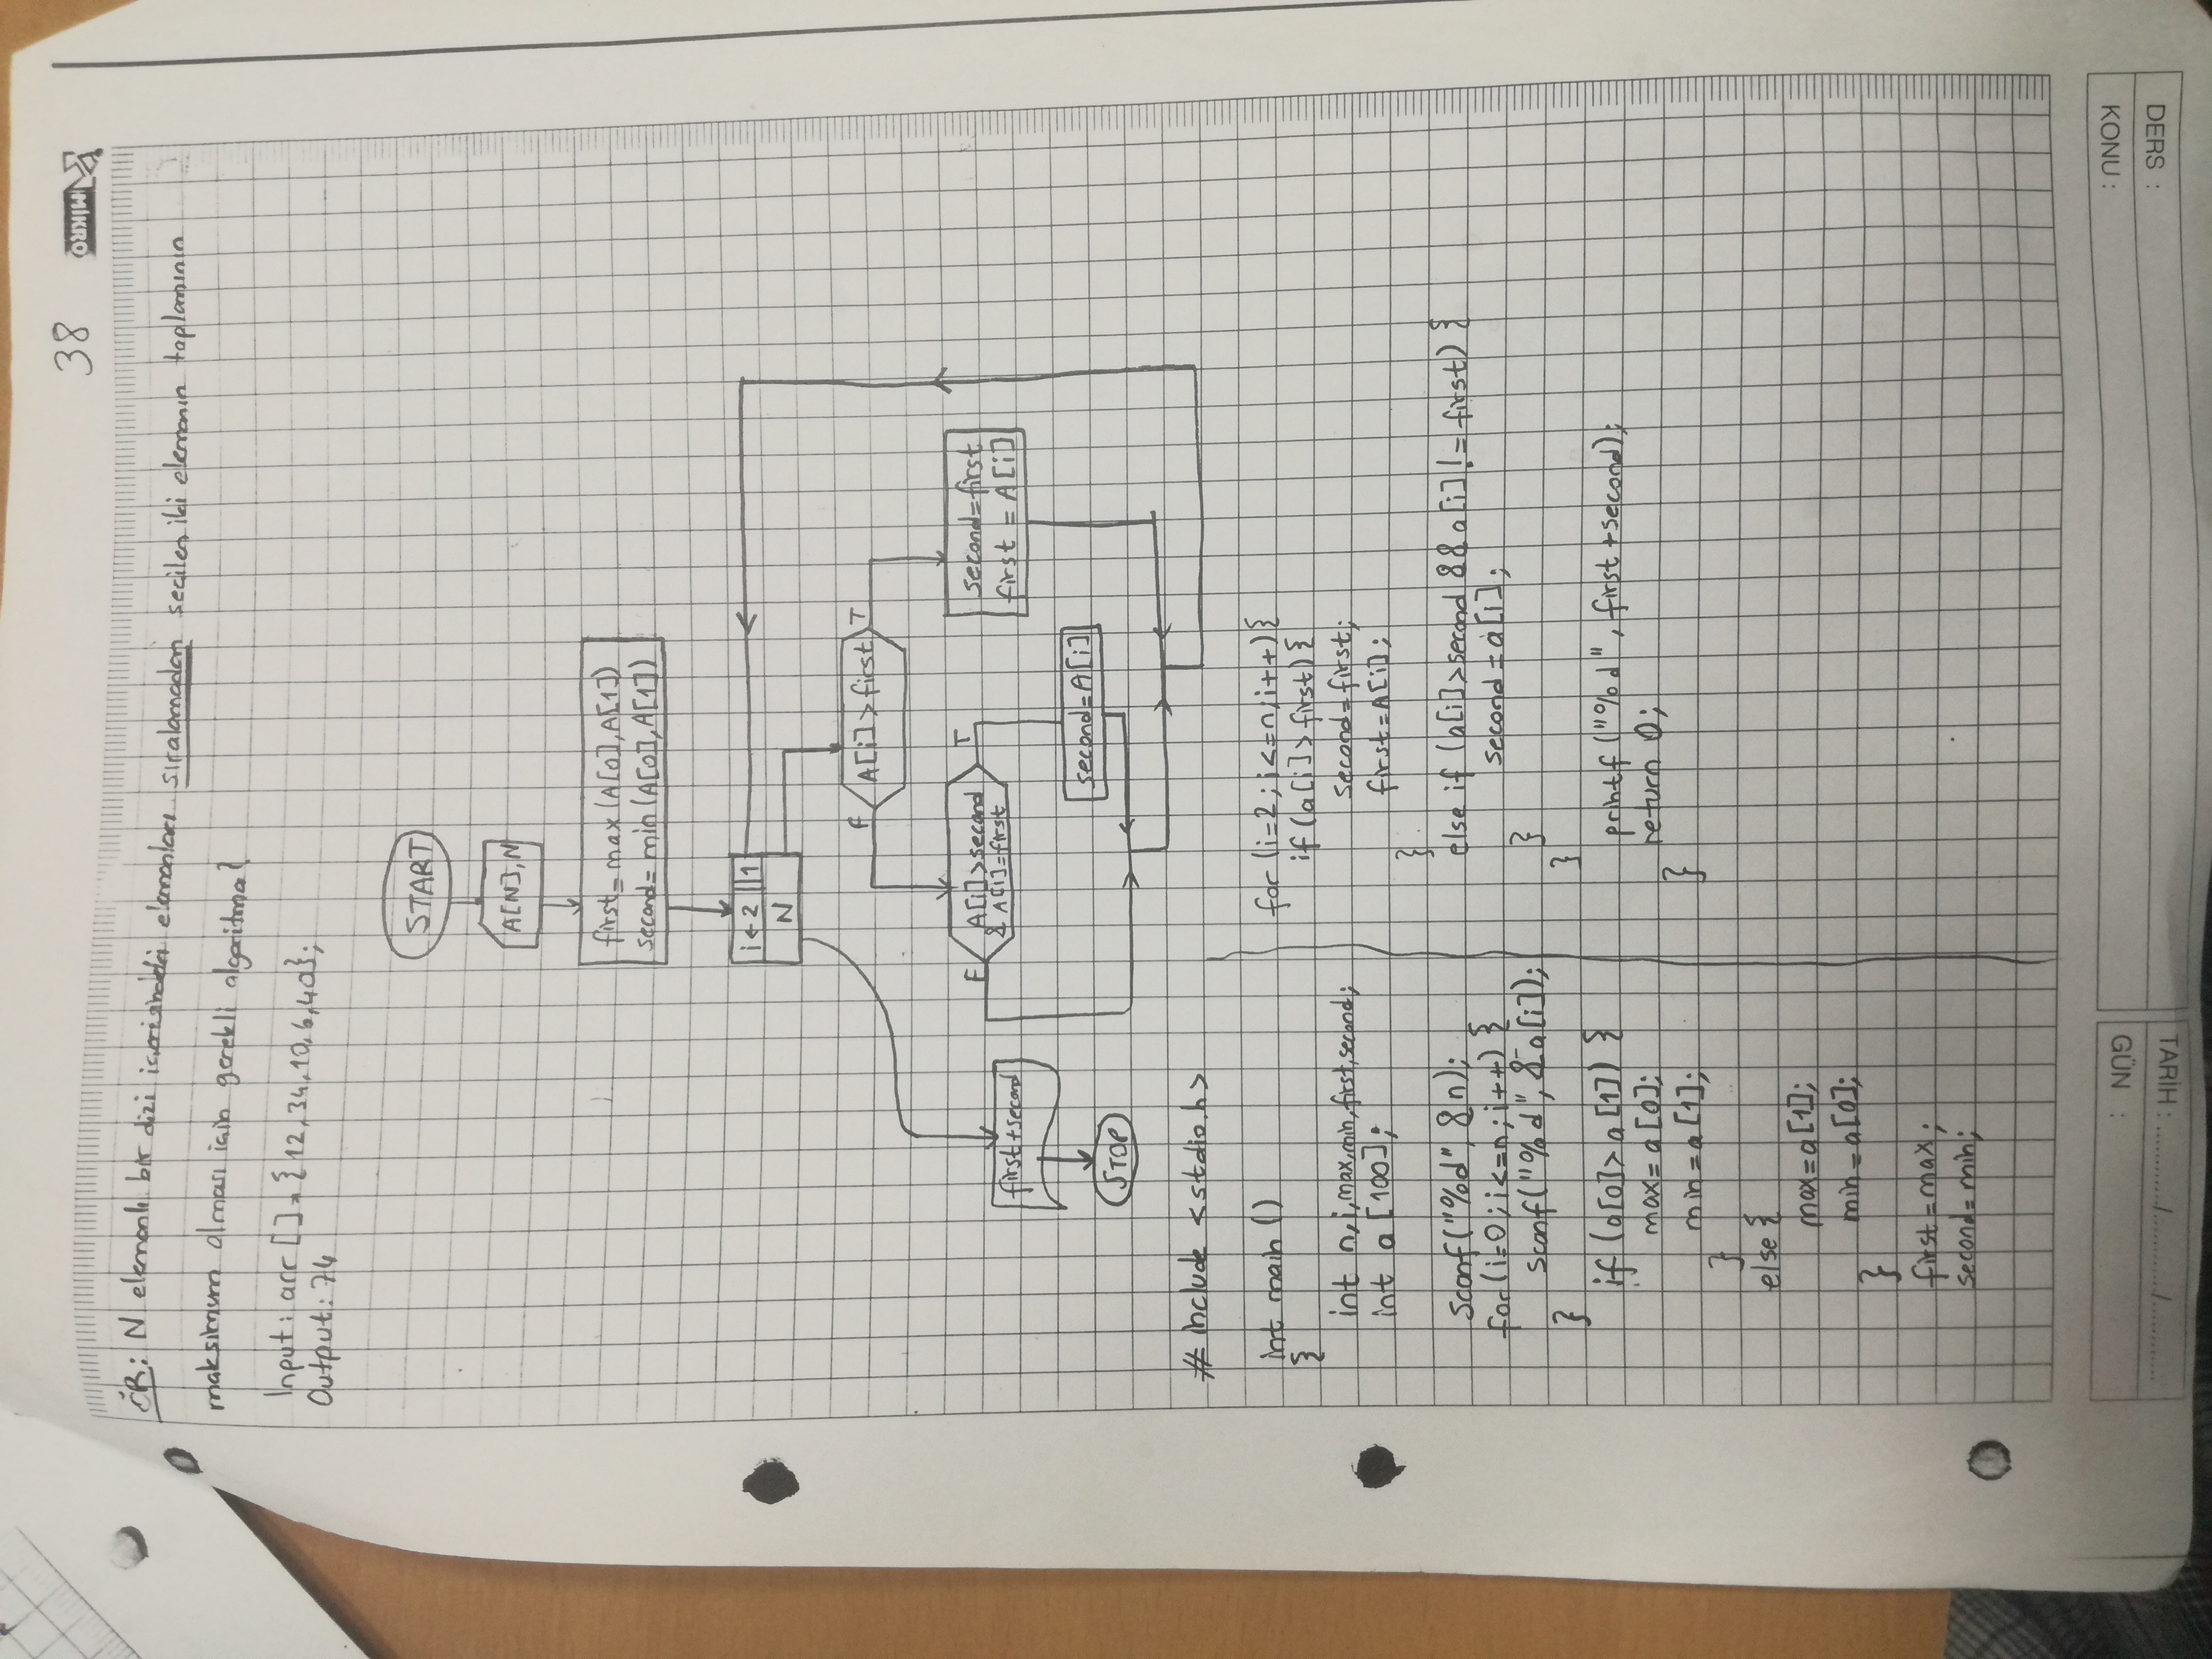 38
MIKRO
ÖR: N elemanlı bir dizi içerisindeki elemanları sıralamadan seçilen iki elemanın toplamının
maksimum olması için gerekli algoritma?
Input: arr[]={12,34,10,6,40};
Output: 74
START
A[N],N
first=max(A[0],A[1])
second=min(A[0],A[1])
i←2 1
N
F A[i]>first T
F A[i]>second T
& A[i]=first
second=first
first = A[i]
first+second
second=A[i]
STOP
# include <stdio.h>
int main ()
{
int n,i,max,min,first,second;
int a [100];
scanf("%d", &n);
for(i=0;i<=n;i++) {
scanf("%d", &a[i]);
}
if (a[0]>a[1]) {
max=a[0];
min=a[1];
}
else {
max=a[1];
min=a[0];
}
first=max;
second=min;
for (i=2;i<=n;i++){
if(a[i]>first){
second=first;
first=A[i];
}
else if (a[i]>second && a[i]!=first) {
second=a[i];
}
}
printf("%d", first+second);
return 0;
}
GÜN :
TARİH : / /
KONU :
DERS :